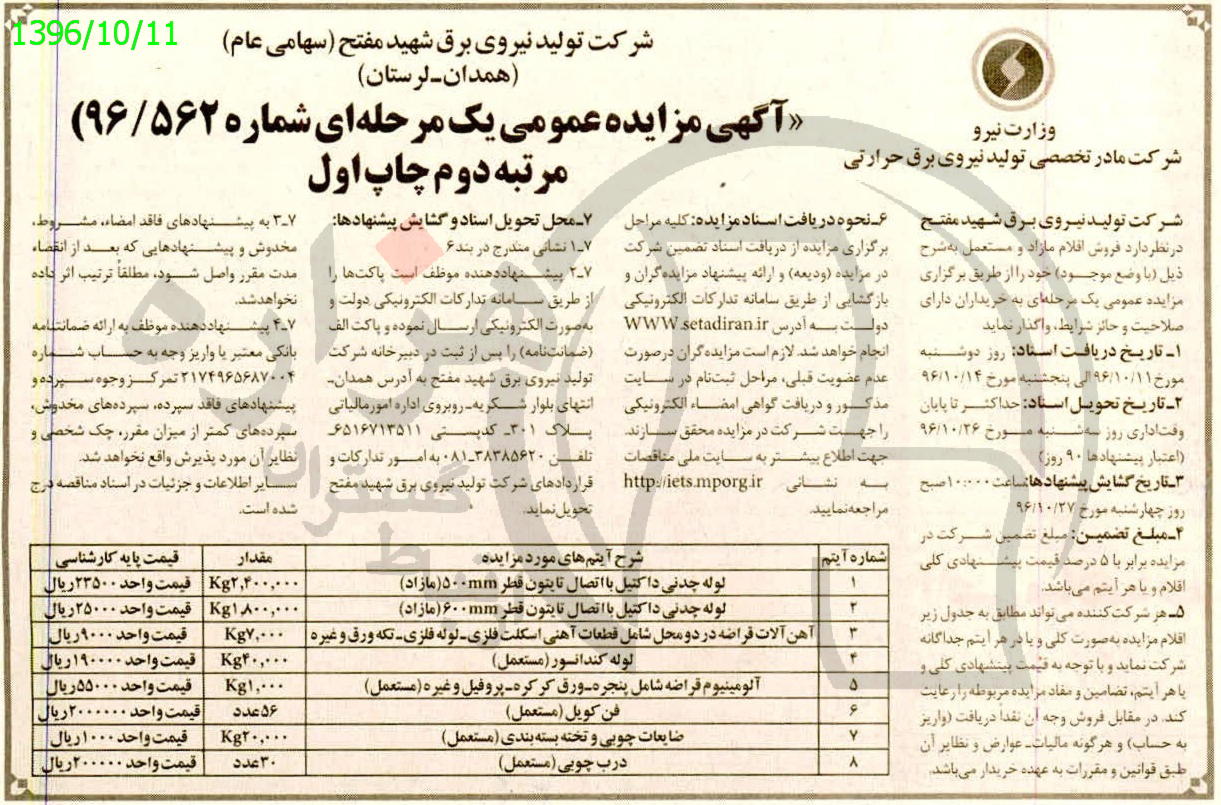 1396/10/11
شرکت تولید نیروی برق شهید مفتح (سهامی عام)
(همدان-لرستان)
«آگهی مزایده عمومی یک مرحله‌ای شماره ۹۶/۵۶۲)
مرتبه دوم چاپ اول
وزارت نیرو
شرکت مادر تخصصی تولید نیروی برق حرارتی
شرکت تولید نیروی برق شهید مفتح
درنظر دارد فروش اقلام مازاد و مستعمل به‌شرح
ذیل (با وضع موجود) خود را از طریق برگزاری
مزایده عمومی یک مرحله‌ای به خریداران دارای
صلاحیت و حائز شرایط، واگذار نماید
۱ـ تاریخ دریافت اسناد: روز دوشنبه
مورخ ۹۶/۱۰/۱۱ الی پنجشنبه مورخ ۹۶/۱۰/۱۴
۲ـ تاریخ تحویل اسناد: حداکثر تا پایان
وقت اداری روز سه‌شنبه مورخ ۹۶/۱۰/۲۶
(اعتبار پیشنهادها ۹۰ روز)
۳ـ تاریخ گشایش پیشنهادها: ساعت ۱۰:۰۰ صبح
روز چهارشنبه مورخ ۹۶/۱۰/۲۷
۴ـ مبلغ تضمین: مبلغ تضمین شرکت در
مزایده برابر با ۵ درصد قیمت پیشنهادی کلی
اقلام و یا هر آیتم می‌باشد.
۵ـ هر شرکت‌کننده می‌تواند مطابق به جدول زیر
اقلام مزایده به‌صورت کلی و یا در هر آیتم جداگانه
شرکت نماید و با توجه به قیمت پیشنهادی کلی و
یا هر آیتم، تضامین و مفاد مزایده مربوطه را رعایت
کند. در مقابل فروش وجه آن نقداً دریافت (واریز
به حساب) و هرگونه مالیات- عوارض و نظایر آن
طبق قوانین و مقررات به عهده خریدار می‌باشد.
۶ـ نحوه دریافت اسناد مزایده: کلیه مراحل
برگزاری مزایده از دریافت اسناد تضمین شرکت
در مزایده (ودیعه) و ارائه پیشنهاد مزایده‌گران و
بازگشایی از طریق سامانه تدارکات الکترونیکی
دولت به آدرس WWW.setadiran.ir
انجام خواهد شد. لازم است مزایده‌گران درصورت
عدم عضویت قبلی، مراحل ثبت‌نام در سایت
مذکور و دریافت گواهی امضاء الکترونیکی
را جهت شرکت در مزایده محقق سازند.
جهت اطلاع بیشتر به سایت ملی مناقصات
به نشانی http://iets.mporg.ir
مراجعه نمایید.
۷ـ محل تحویل اسناد و گشایش پیشنهادها:
۷ـ۱ نشانی مندرج در بند ۶
۷ـ۲ پیشنهاددهنده موظف است پاکت‌ها را
از طریق سامانه تدارکات الکترونیکی دولت و
به‌صورت الکترونیکی ارسال نموده و پاکت الف
(ضمانت‌نامه) را پس از ثبت در دبیرخانه شرکت
تولید نیروی برق شهید مفتح به آدرس همدان-
انتهای بلوار شکریه- روبروی اداره امور مالیاتی
پلاک ۳۰۱- کدپستی ۶۵۱۶۷۱۳۵۱۱-
تلفن ۳۸۳۸۵۶۲۰-۰۸۱ به امور تدارکات و
قراردادهای شرکت تولید نیروی برق شهید مفتح
تحویل نماید.
۷ـ۳ به پیشنهادهای فاقد امضاء، مشروط،
مخدوش و پیشنهادهایی که بعد از انقضاء
مدت مقرر واصل شود، مطلقاً ترتیب اثر داده
نخواهد شد.
۷ـ۴ پیشنهاددهنده موظف به ارائه ضمانتنامه
بانکی معتبر یا واریز وجه به حساب شماره
۲۱۷۴۹۶۵۶۸۷۰۰۴ تمرکز وجوه سپرده و
پیشنهادهای فاقد سپرده، سپرده‌های مخدوش،
سپرده‌های کمتر از میزان مقرر، چک شخصی و
نظایر آن مورد پذیرش واقع نخواهد شد.
سایر اطلاعات و جزئیات در اسناد مناقصه درج
شده است.
شماره آیتم شرح آیتم‌های مورد مزایده مقدار قیمت پایه کارشناسی
۱ لوله چدنی داکتیل با اتصال تایتون قطر ۵۰۰mm (مازاد) Kg۲,۴۰۰,۰۰۰ قیمت واحد ۲۳۵۰۰ ریال
۲ لوله چدنی داکتیل با اتصال تایتون قطر ۶۰۰mm (مازاد) Kg۱,۸۰۰,۰۰۰ قیمت واحد ۲۵۰۰۰ ریال
۳ آهن آلات قراضه در دو محل شامل قطعات آهنی اسکلت فلزی- لوله فلزی- تکه ورق و غیره Kg۷,۰۰۰ قیمت واحد ۹۰۰۰ ریال
۴ لوله کندانسور (مستعمل) Kg۴۰,۰۰۰ قیمت واحد ۱۹۰۰۰۰ ریال
۵ آلومینیوم قراضه شامل پنجره- ورق کرکره- پروفیل و غیره (مستعمل) Kg۱,۰۰۰ قیمت واحد ۵۵۰۰۰ ریال
۶ فن کویل (مستعمل) ۵۶ عدد قیمت واحد ۲۰۰۰۰۰۰ ریال
۷ ضایعات چوبی و تخته بسته‌بندی (مستعمل) Kg۲۰,۰۰۰ قیمت واحد ۱۰۰۰ ریال
۸ درب چوبی (مستعمل) ۳۰ عدد قیمت واحد ۲۰۰۰۰۰ ریال